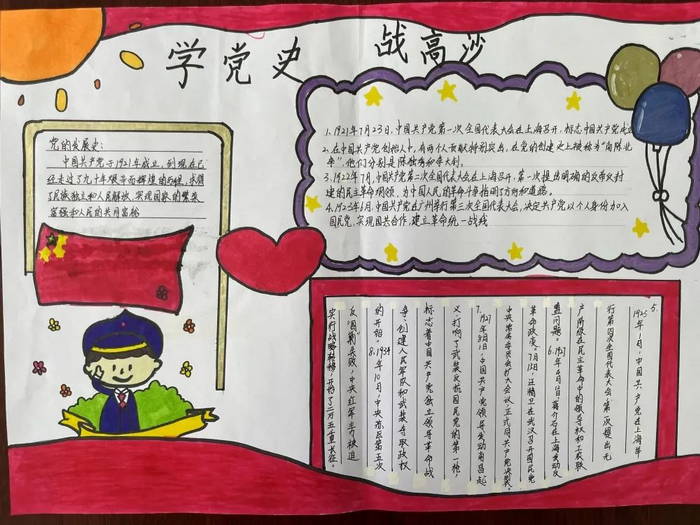 学党史 战高沙
党的发展史:
中国共产党于1921年成立,到现在已
经走过了九十年艰辛而辉煌的历程,求得
了民族独立和人民解放,实现国家的繁荣
富强和人民的共同富裕
1、1921年7月23日,中国共产党第一次全国代表大会在上海召开,标志中国共产党成立
2、在中国共产党创始人中,有两个人贡献特别突出,在党的创建史上被称为“南陈北
李”,他们分别是陈独秀和李大钊。
3、1922年7月,中国共产党第二次全国代表大会在上海召开,第一次提出明确的反帝反封
建的民主革命纲领,为中国人民的革命斗争指明了方向和道路。
4、1923年6月,中国共产党在广州举行第三次全国代表大会,决定共产党以个人身份加入
国民党,实现国共合作,建立革命统一战线
5、1925年1月,中国共产党在上海举
行第四次全国代表大会,第一次提出无
产阶级在民主革命中的领导权和工农联
盟问题。6、1927年4月12日,蒋介石在上海发动反
革命政变。7月15日,汪精卫在武汉召开国民党
中央常务委员会扩大会议,正式同共产党决裂。
7、1927年8月1日,中国共产党领导发动南昌起
义,打响了武装反抗国民党的第一枪,
标志着中国共产党独立领导革命战
争,创建人民军队和武装夺取政权
的开始。8、1934年10月,中央苏区第五次
反“围剿”失败,中央红军主力被迫
实行战略转移,开始了二万五千里长征。